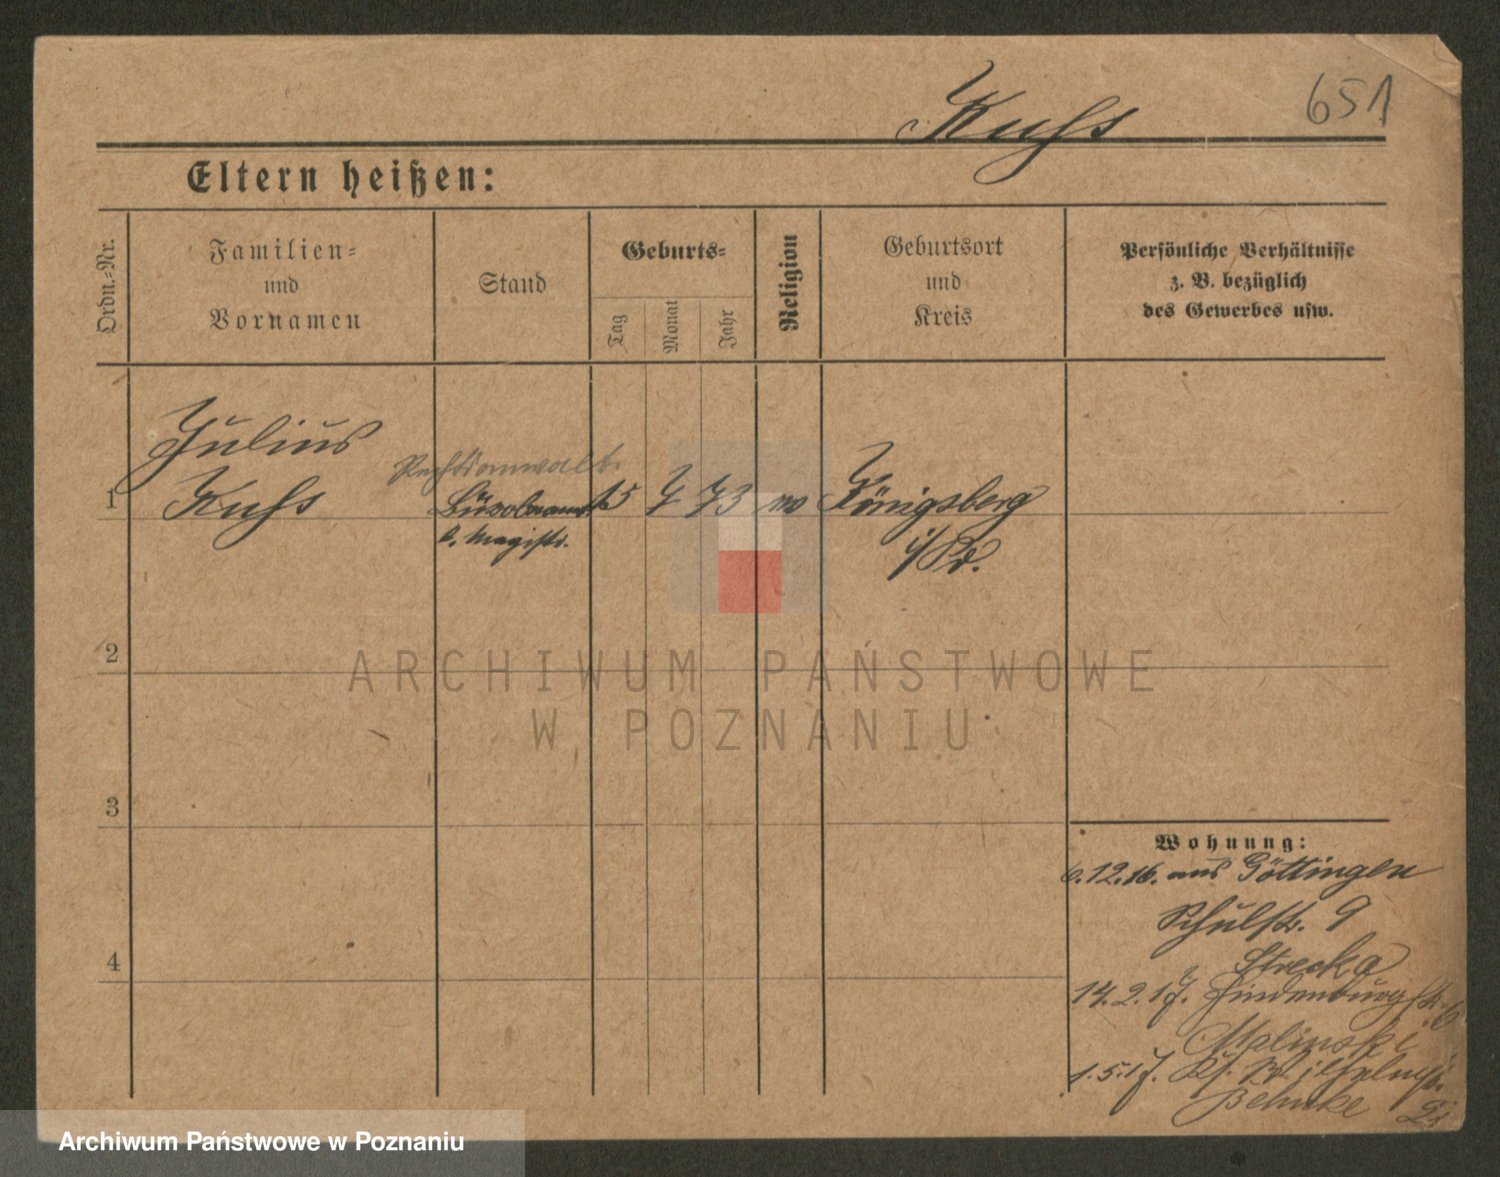 651
Kuhs
Eltern heißen:
Ordn.-Nr.
Familien-
und
Vornamen
Stand
Geburts-
Tag
Monat
Jahr
Religion
Geburtsort
und
Kreis
Persönliche Verhältnisse
z. B. bezüglich
des Gewerbes usw.
Julius
1 Kuhs
Rechtsanwalt
b. Magistr.
15 7 73
Königsberg
i/Pr.
2
3
4
ARCHIWUM PAŃSTWOWE
W POZNANIU
Wohnung:
6.12.16. aus Göttingen
Schulstr. 9
Strecka
14.2.17. Hindenburgstr. 6
Malinski
1.5.17. Ks. Wilhelmstr.
Behnke
Archiwum Państwowe w Poznaniu